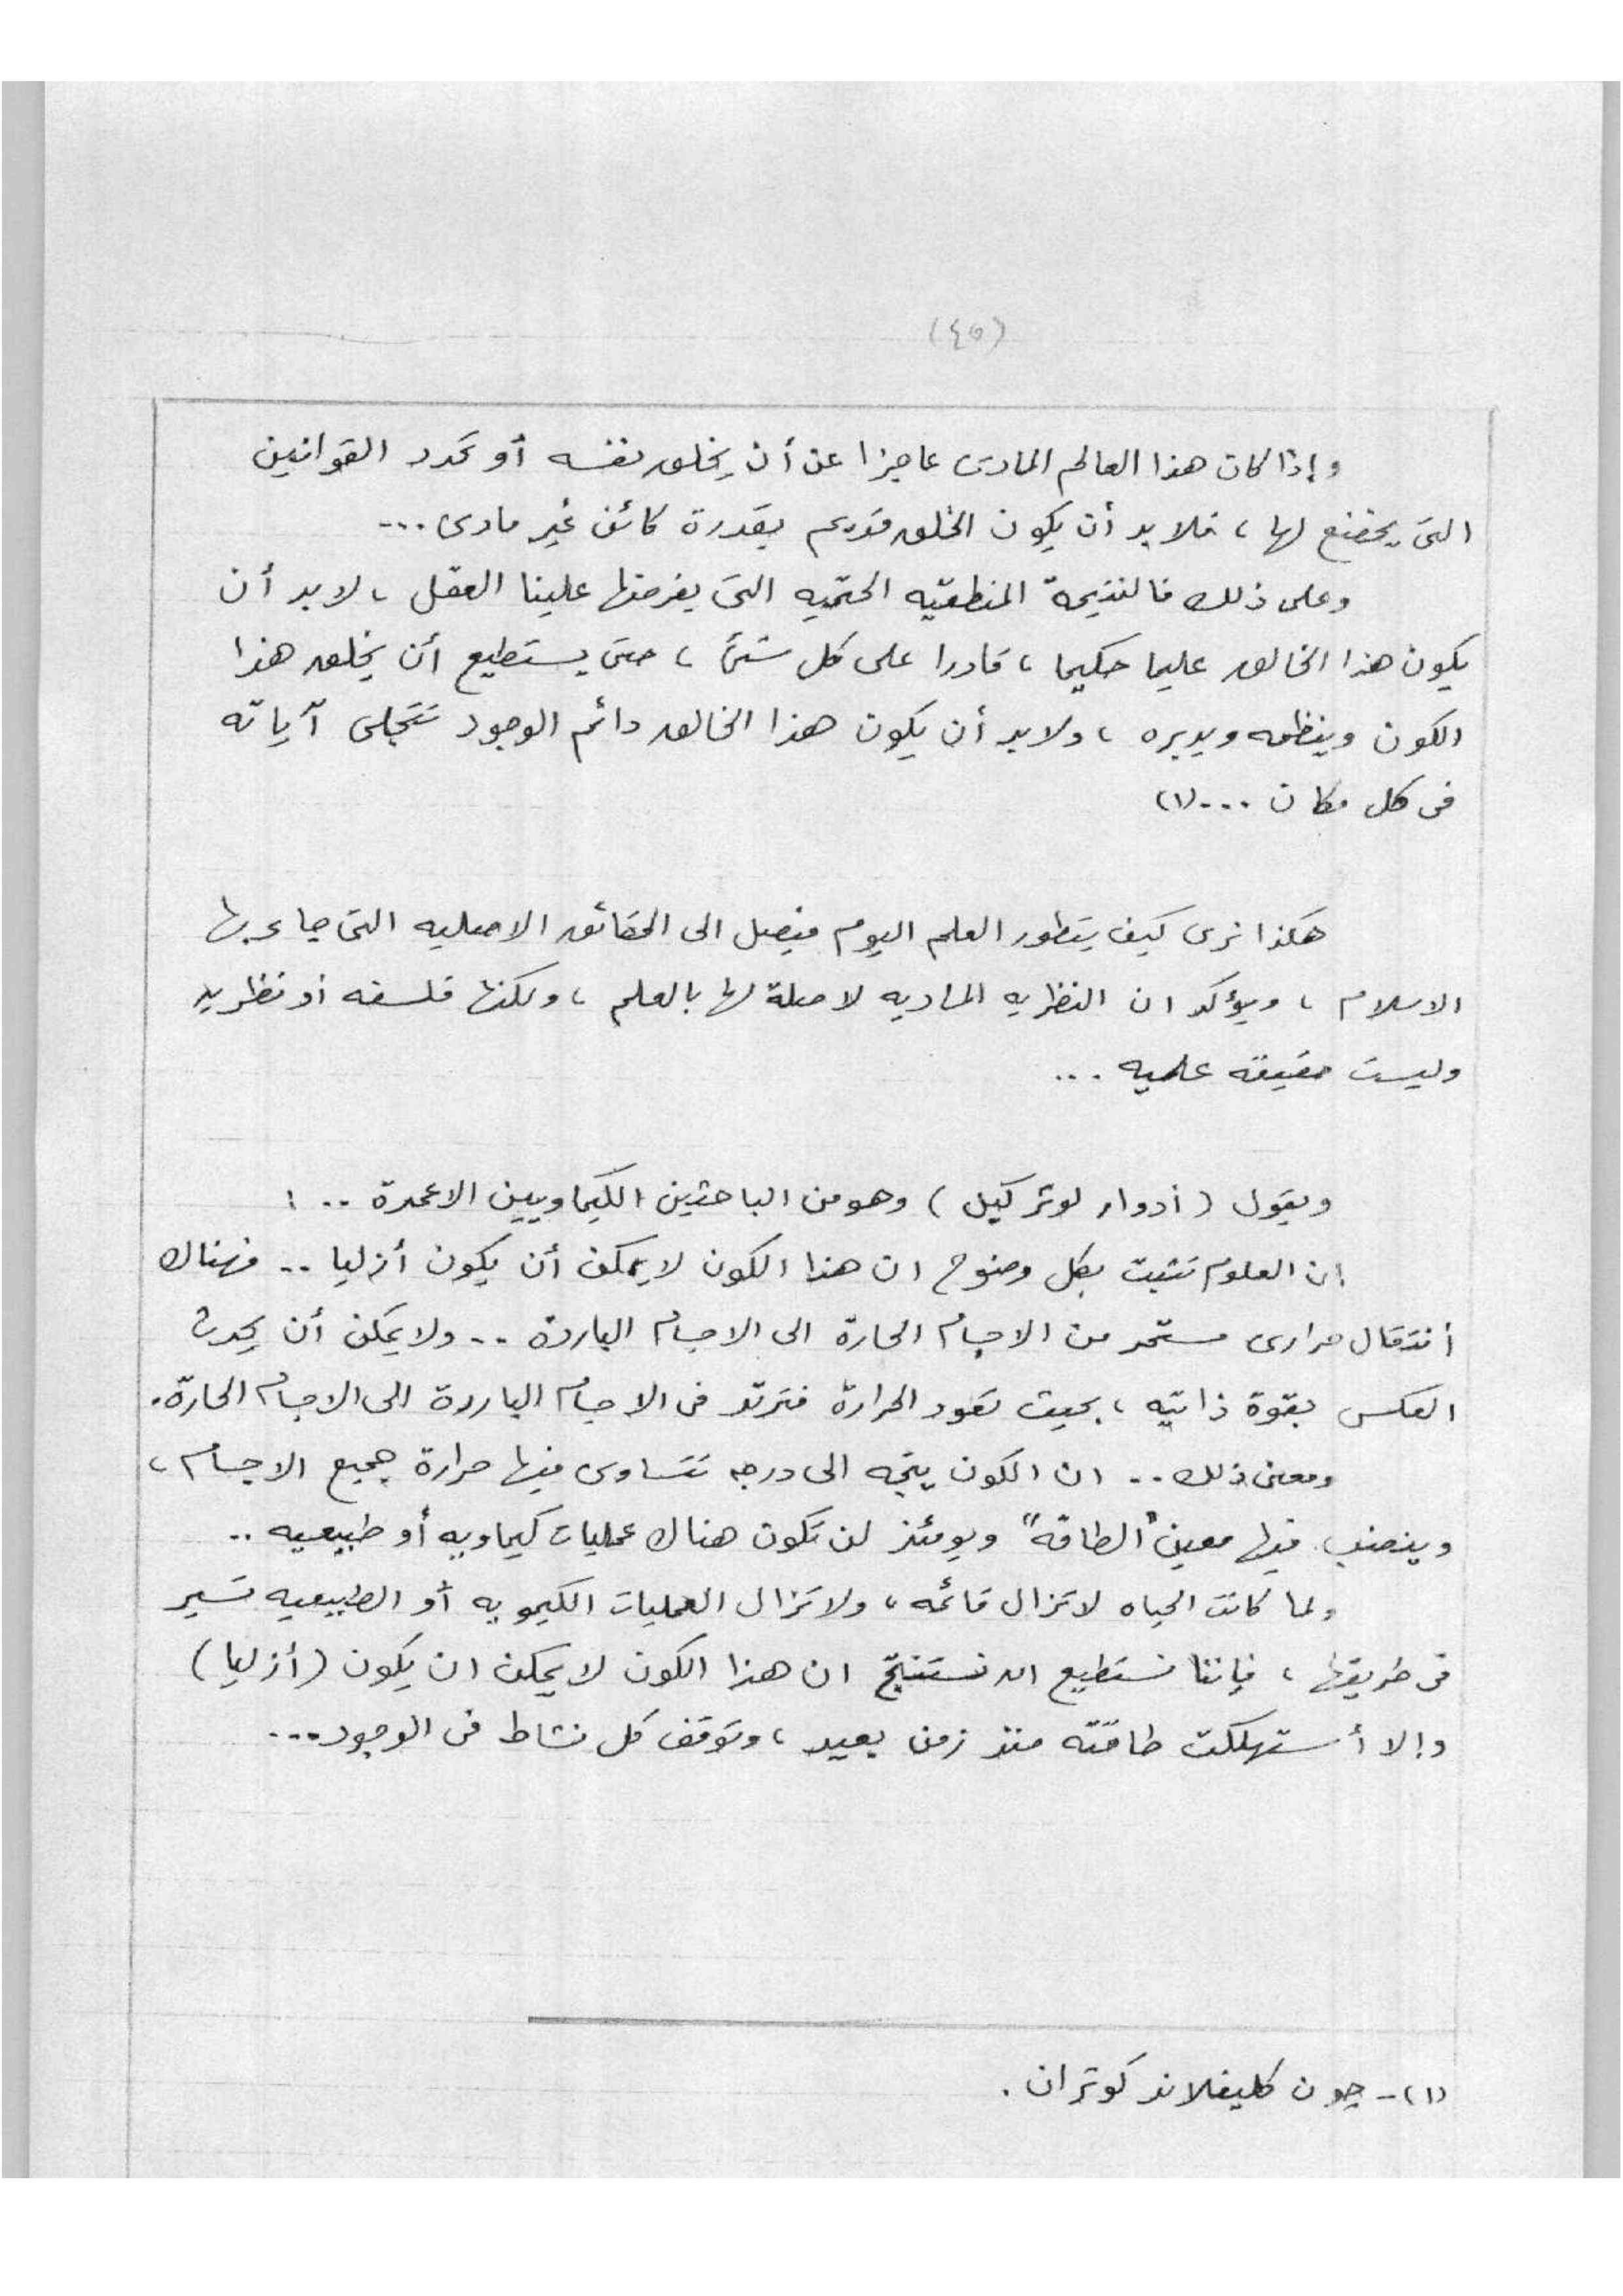 (٤٥)
وإذا كان هذا العالم المادى عاجزا عن أن يخلق نفسه أو يحدد القوانين
التى يخضع لها ، فلابد أن يكون الخلق قد تم بقدرة كائن غير مادى ...
وعلى ذلك فالنتيجة المنطقيه الحتميه التى يفرضها علينا العقل ، لابد أن
يكون هذا الخالق عليما حكيما ، قادرا على كل شئ ، حتى يستطيع أن يخلق هذا
الكون وينظمه ويديره ، ولابد أن يكون هذا الخالق دائم الوجود تتجلى آياته
فى كل مكان ... (١)
هكذا نرى كيف يتطور العلم اليوم فيصل الى الحقائق الاصليه التى جاء بها
الاسلام ، ويؤكد ان النظريه الماديه لا صلة لها بالعلم ، ولكنها فلسفه أو نظريه
وليست حقيقه علميه ...
ويقول ( أدوار لوثر كيل ) وهو من الباحثين الكيماويين الاعمدة .. :
ان العلوم تثبت بكل وضوح ان هذا الكون لا يمكن أن يكون أزليا .. فهناك
أنتقال حرارى مستمر من الاجسام الحارة الى الاجسام الباردة .. ولا يمكن أن يحدث
العكس بقوة ذاتيه ، بحيث تعود الحرارة فترتد فى الاجسام الباردة الى الاجسام الحارة .
ومعنى ذلك .. ان الكون يتجه الى درجه تتساوى فيها حرارة جميع الاجسام ،
وينضب فيها معين "الطاقه" ويومئذ لن تكون هناك عمليات كيماويه أو طبيعيه ..
ولما كانت الحياه لا تزال قائمه ، ولا تزال العمليات الكيمويه أو الطبيعيه تسير
فى طريقها ، فإننا نستطيع ان نستنتج ان هذا الكون لا يمكن ان يكون ( أزليا )
وإلا أستهلكت طاقته منذ زمن بعيد ، وتوقف كل نشاط فى الوجود ...
(١) - جون كليفلاند كوتران .